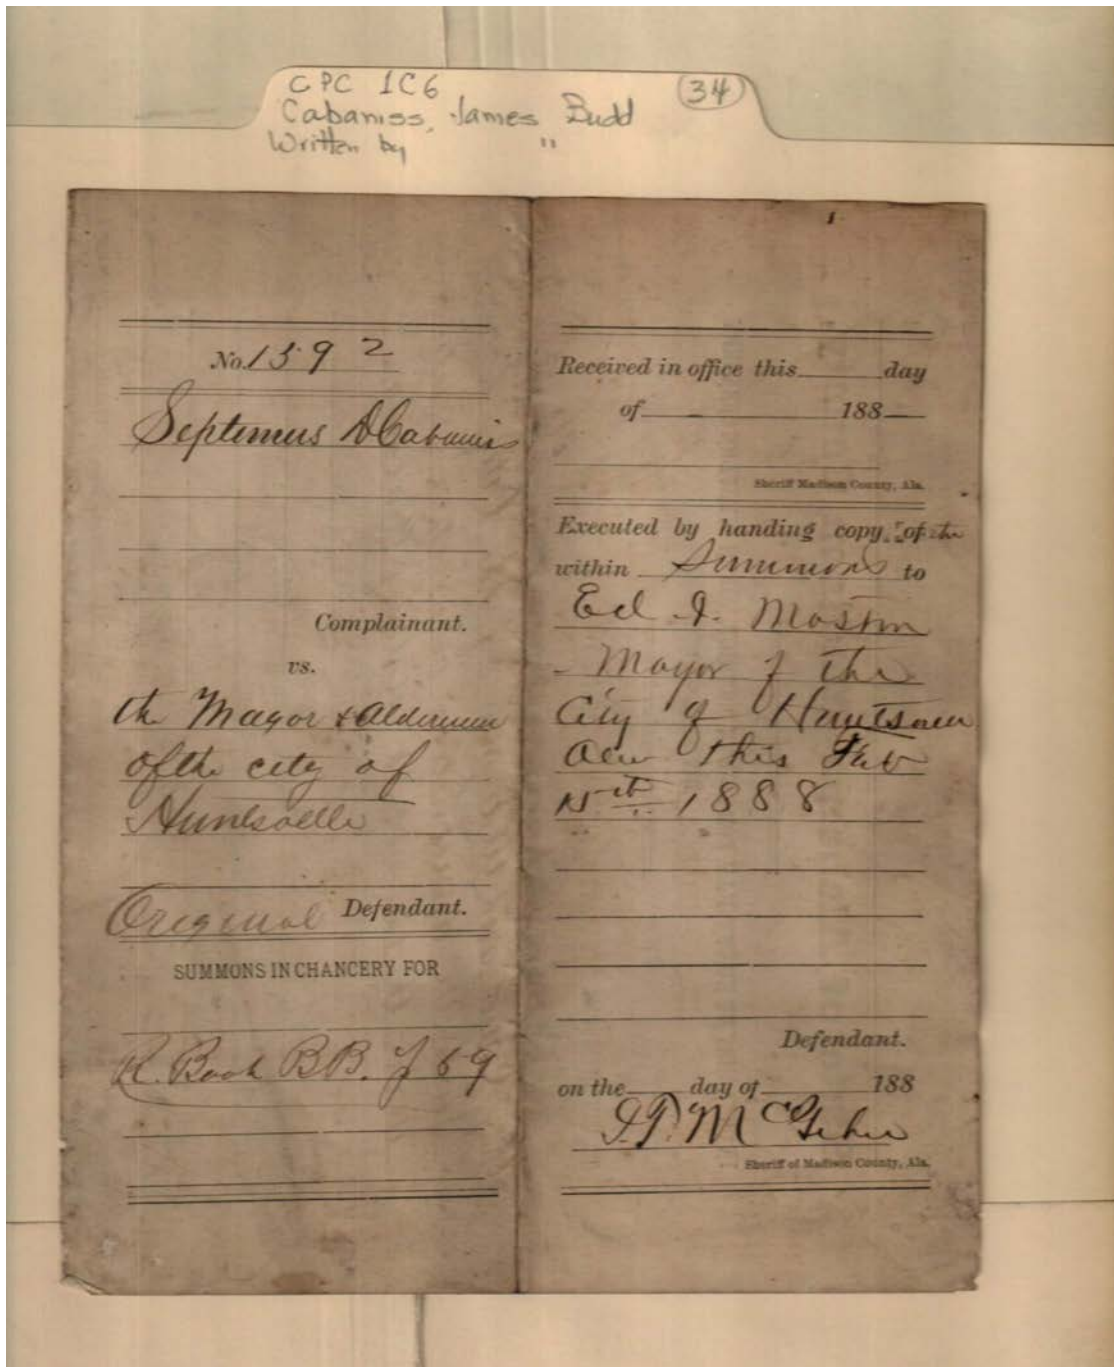 CPC 1C6
34
Cabaniss, James Budd
Written by "
No. 1592
Septimus D Cabaniss
Complainant.
vs.
the Mayor & Aldermen
of the city of
Huntsville
Original Defendant.
SUMMONS IN CHANCERY FOR
R. Book BB. f 69
Received in office this day
of 188
Sheriff Madison County, Ala.
Executed by handing copy of the
within Summons to
Ed I. Mastin
Mayor of the
City of Huntsville
this Feb
15th 1888
Defendant.
on the day of 188
McGehee
Sheriff of Madison County, Ala.